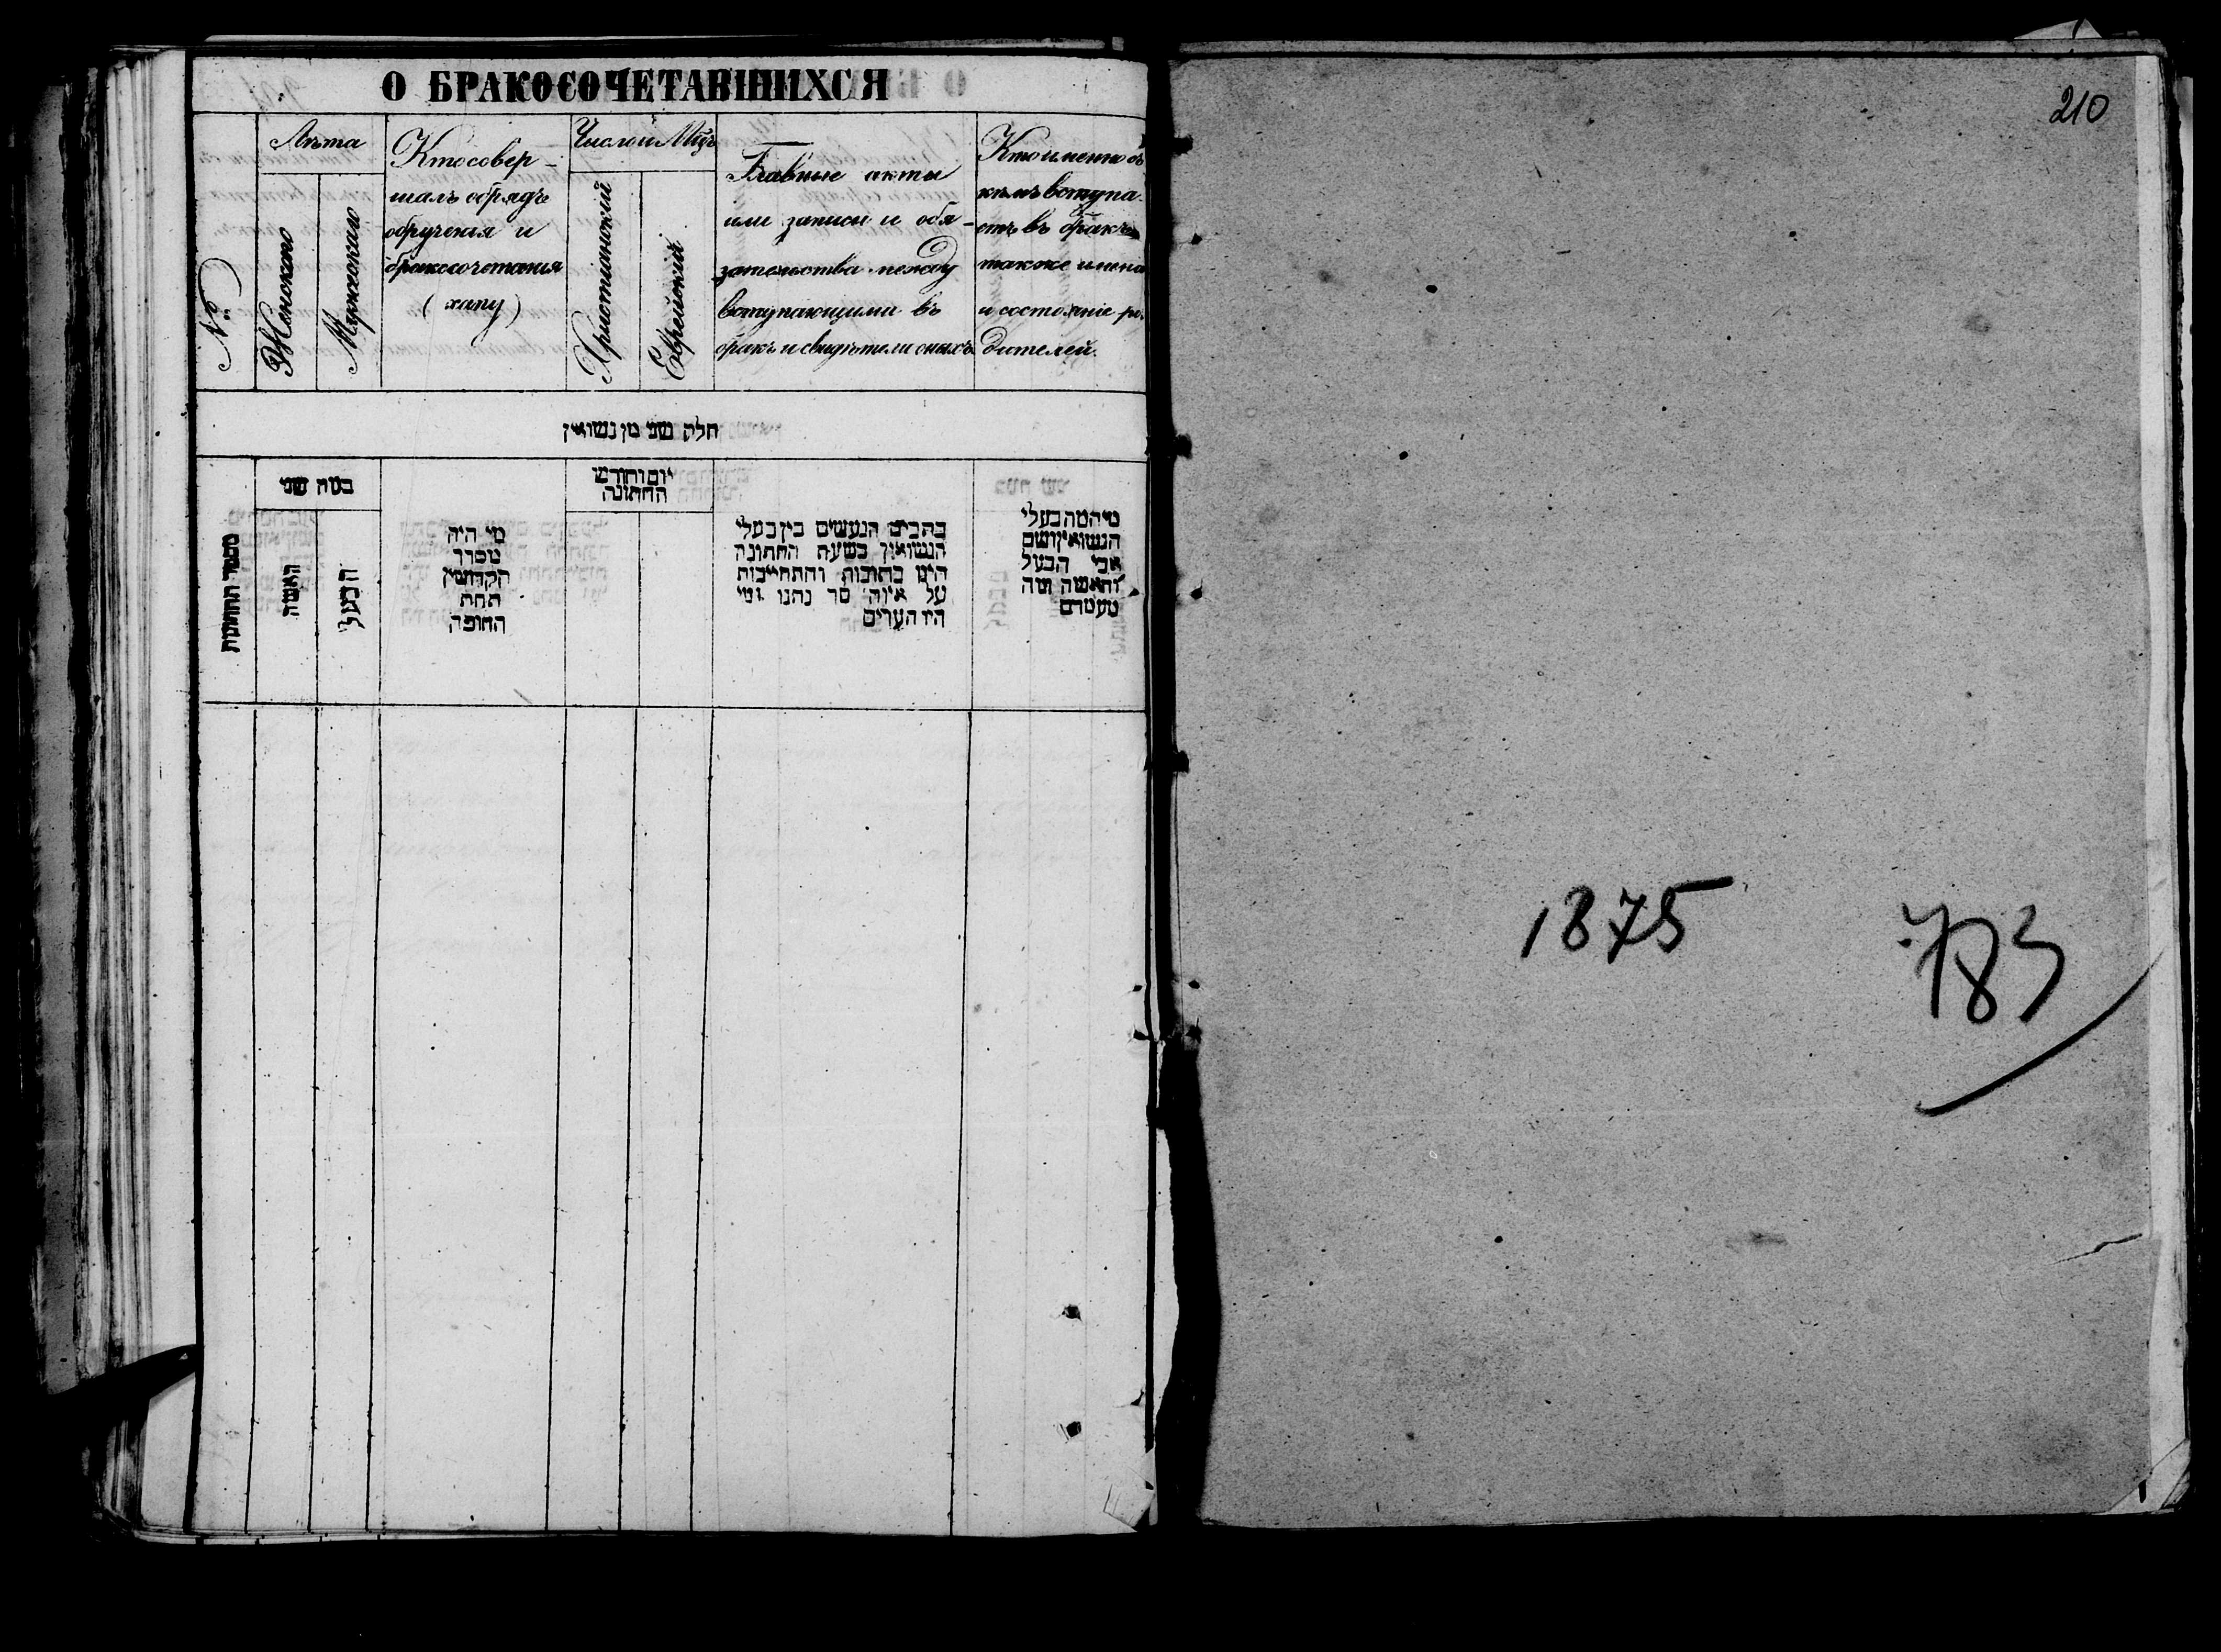 О БРАКОСОЧЕТАВШИХСЯ
№
Лѣта
Женского
Мужеского
Кто совер-
шалъ обрядъ
обрученія и
бракосочетанія
(хупу)
Число и Мцъ
Христіанскій
Еврейскій
Главные акты
или записи и обя-
зательства между
вступающими въ
бракъ и свидѣтели оныхъ.
Кто именно съ
кѣмъ вступа-
етъ въ бракъ
также имена
и состояніе ро-
дителей.
חלק שני מן נשואין
מספר החתונות
כמה שני
האשה
הבעל
מי היה
מסדר
הקדושין
תחת
החופה
יום וחודש
החתונה
כתבים הנעשים בין בעלי
הנשואין בשעת החתונה
היינו כתובות והתחייבות
על איזה סך נתנו ומי
היו העדים
מי המה בעלי
הנשואין ושם
אבי הבעל
והאשה ומה
מעמדם
210
1875
783